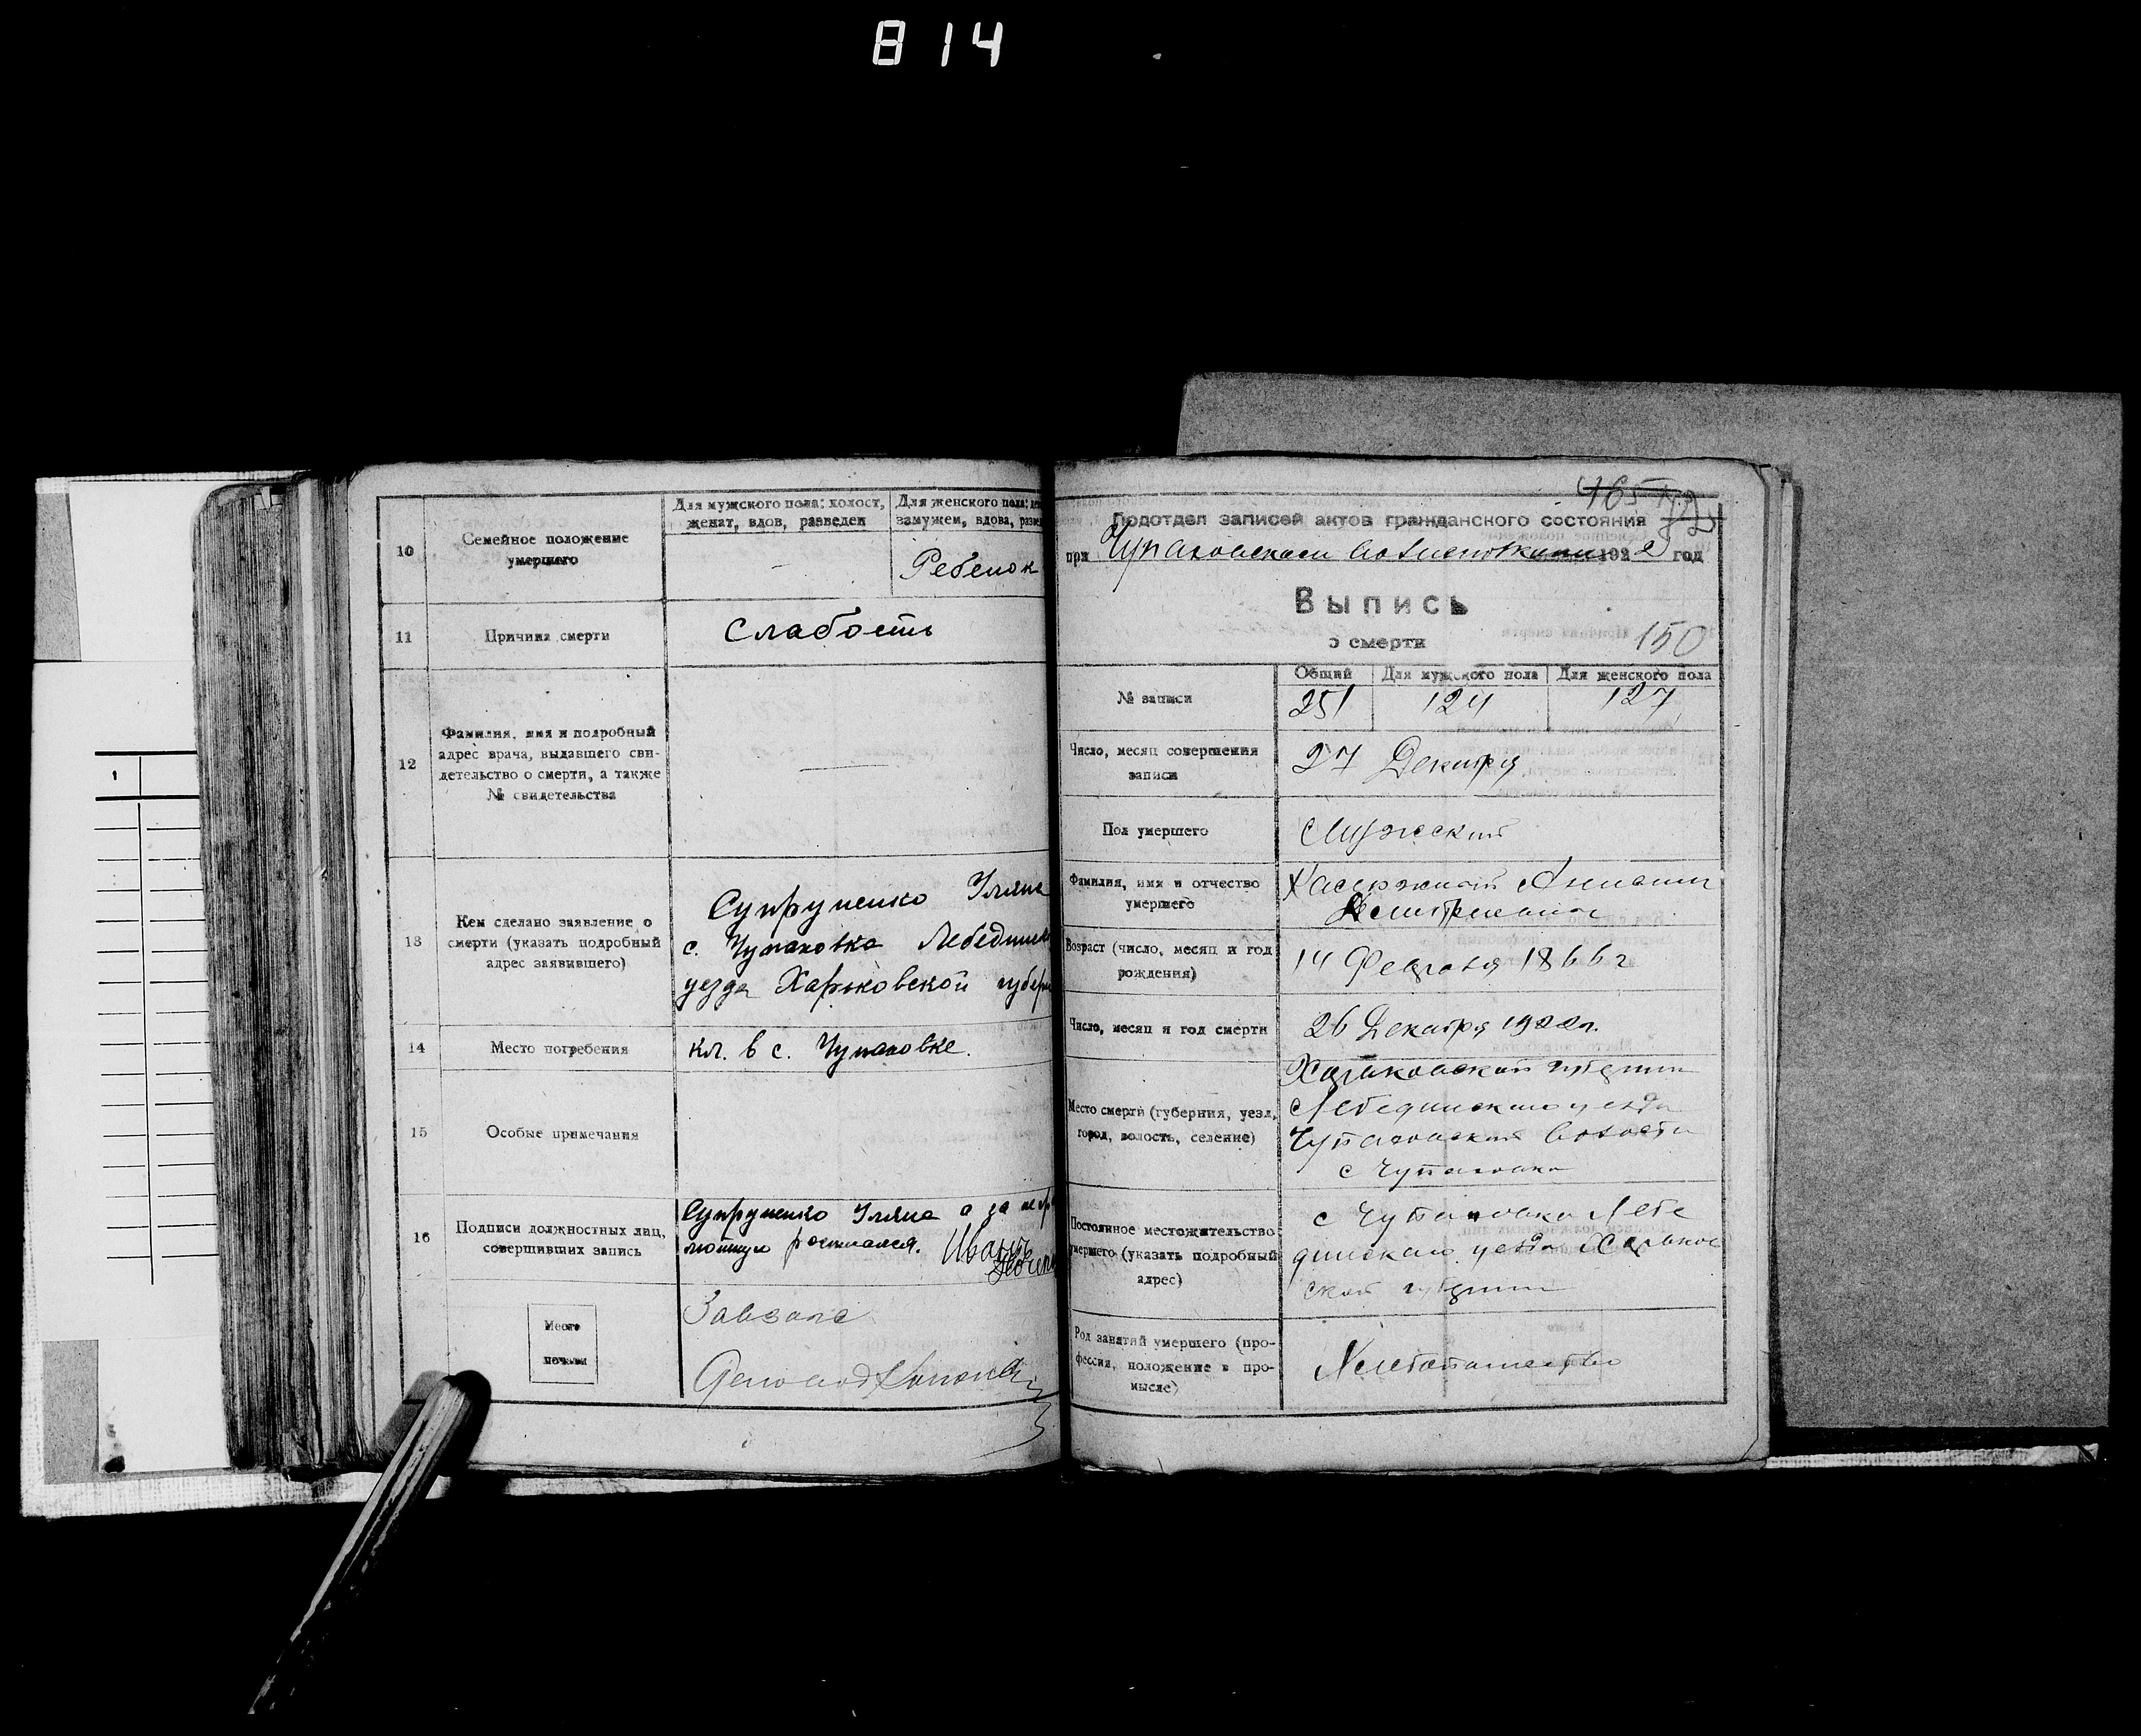 814
10
Семейное положение
умершего
Для мужского пола: холост,
женат, вдов, разведен
Для женского пола:
замужем, вдова,
Ребенок
11
Причина смерти
Слабость
12
Фамилия, имя и подробный
адрес врача, выдавшего сви-
детельство о смерти, а также
№ свидетельства
13
Кем сделано заявление о
смерти (указать подробный
адрес заявившего)
Супруненко Уляна
с. Чупаховка
уезда Харьковской
14
Место погребения
кл. в с. Чупаховке.
15
Особые примечания
16
Подписи должностных лиц,
совершивших запись
Супруненко Уляна а за
Место
печати
Завзагс
465
Подотдел записей актов гражданского состояния
при Чупаховском 1922 год
Выпись
о смерти
150
№ записи
Общий
Для мужского пола
Для женского пола
251
124
127
Число, месяц совершения
записи
27 Декабря
Пол умершего
Мужской
Фамилия, имя и отчество
умершего
Возраст (число, месяц и год
рождения)
14 Февраля 1866 г
Число, месяц и год смерти
26 Декабря 1922 г.
Место смерти (губерния, уезд,
город, волость, селение)
Харьковской губернии
Лебединского уезда
Чупаховской волости
с Чупаховка
Постоянное местожительство
умершего (указать подробный
адрес)
с Чупаховка Лебе
динского уезда Харьков
ской губернии
Род занятий умершего (про-
фессия, положение в про-
мысле)
Хлебопашество